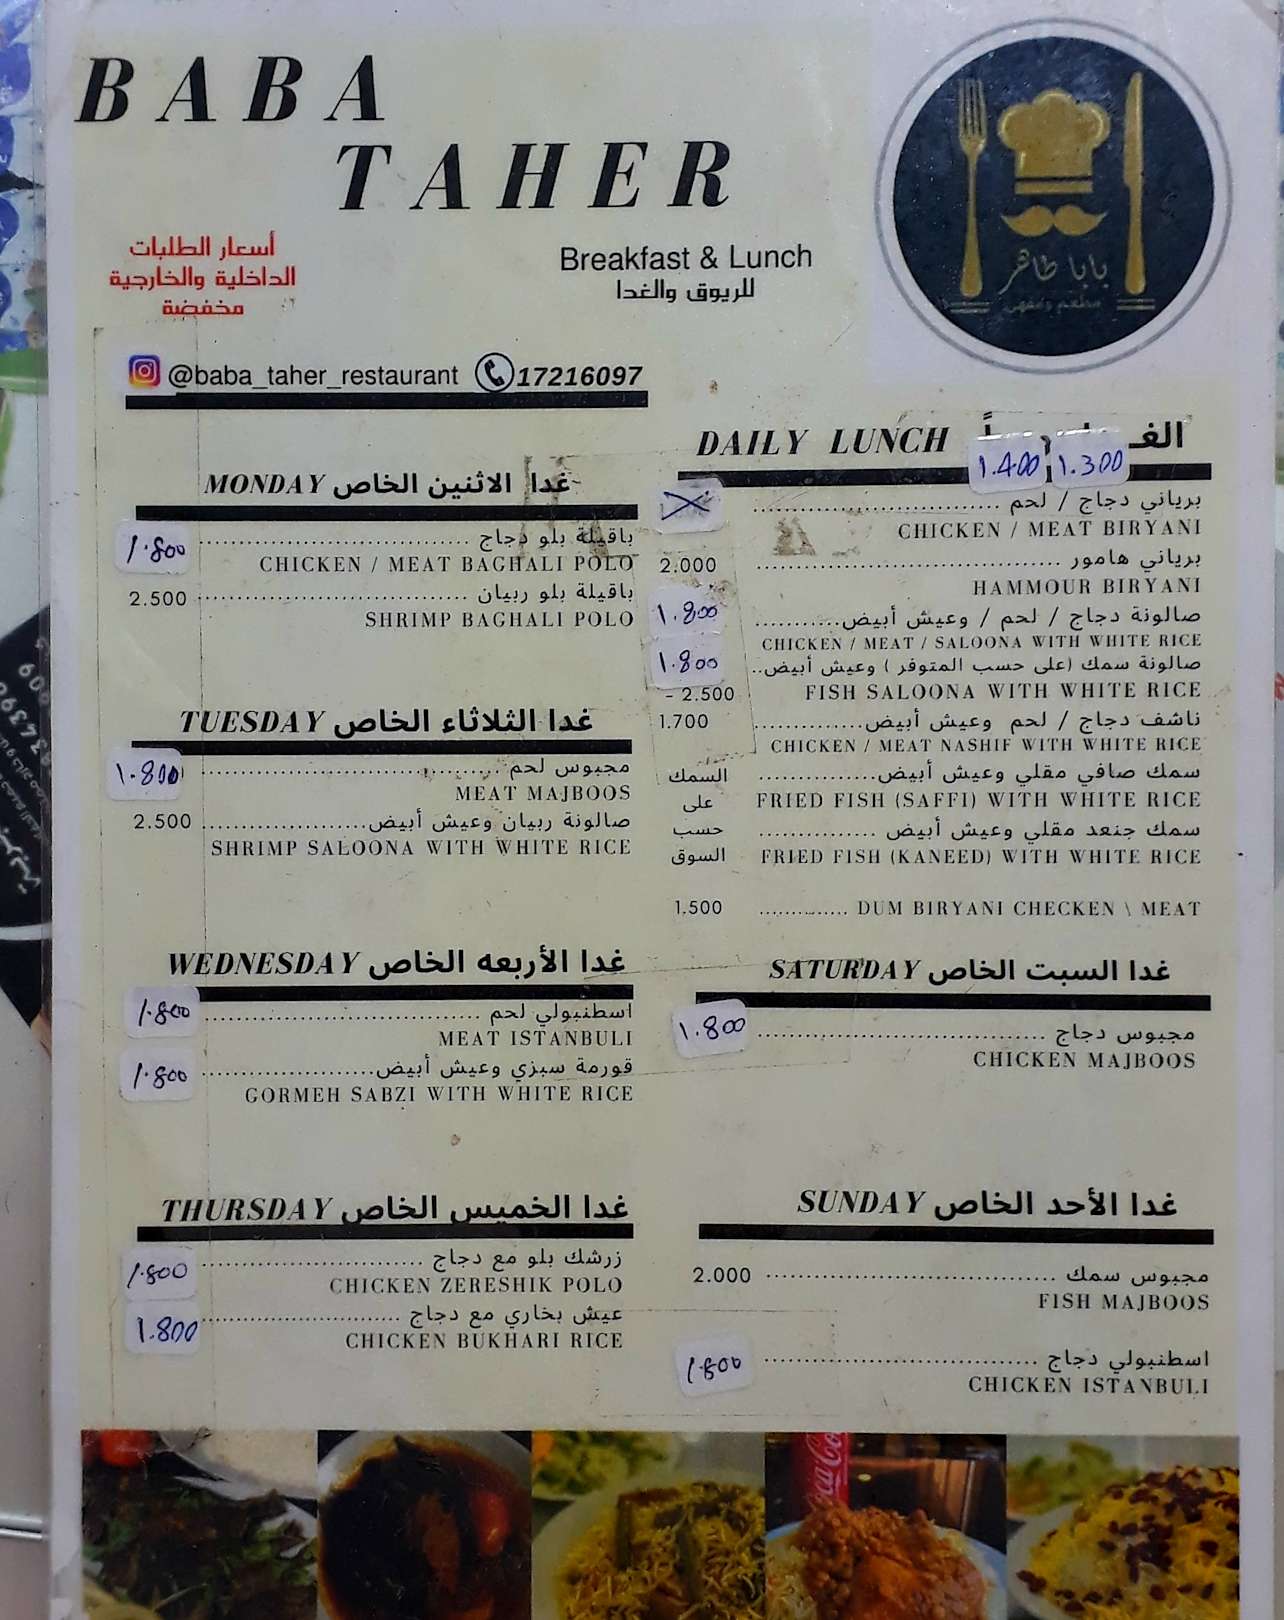 BABA
TAHER
أسعار الطلبات
الداخلية والخارجية
مخفضة
Breakfast & Lunch
للريوق والغدا
بابا طاهر
مطعم ومقهى
@baba_taher_restaurant 17216097
DAILY LUNCH
1.400 1.300
برياني دجاج / لحم
CHICKEN / MEAT BIRYANI
برياني هامور 2.000
HAMMOUR BIRYANI
صالونة دجاج / لحم / وعيش أبيض 1.800
CHICKEN / MEAT / SALOONA WITH WHITE RICE
صالونة سمك (على حسب المتوفر ) وعيش أبيض 1.800
FISH SALOONA WITH WHITE RICE - 2.500
ناشف دجاج / لحم وعيش أبيض 1.700
CHICKEN / MEAT NASHIF WITH WHITE RICE
سمك صافي مقلي وعيش أبيض السمك
FRIED FISH (SAFFI) WITH WHITE RICE على
سمك جنعد مقلي وعيش أبيض حسب
FRIED FISH (KANEED) WITH WHITE RICE السوق
1.500 DUM BIRYANI CHECKEN \ MEAT
MONDAY غدا الاثنين الخاص
باقيلة بلو دجاج 1.800
CHICKEN / MEAT BAGHALI POLO
باقيلة بلو ربيان 2.500
SHRIMP BAGHALI POLO
TUESDAY غدا الثلاثاء الخاص
مجبوس لحم 1.800
MEAT MAJBOOS
صالونة ربيان وعيش أبيض 2.500
SHRIMP SALOONA WITH WHITE RICE
WEDNESDAY غدا الأربعه الخاص
اسطنبولي لحم 1.800
MEAT ISTANBULI
قورمة سبزي وعيش أبيض 1.800
GORMEH SABZI WITH WHITE RICE
THURSDAY غدا الخميس الخاص
زرشك بلو مع دجاج 1.800
CHICKEN ZERESHIK POLO
عيش بخاري مع دجاج 1.800
CHICKEN BUKHARI RICE
SATURDAY غدا السبت الخاص
مجبوس دجاج 1.800
CHICKEN MAJBOOS
SUNDAY غدا الأحد الخاص
مجبوس سمك 2.000
FISH MAJBOOS
اسطنبولي دجاج 1.800
CHICKEN ISTANBULI